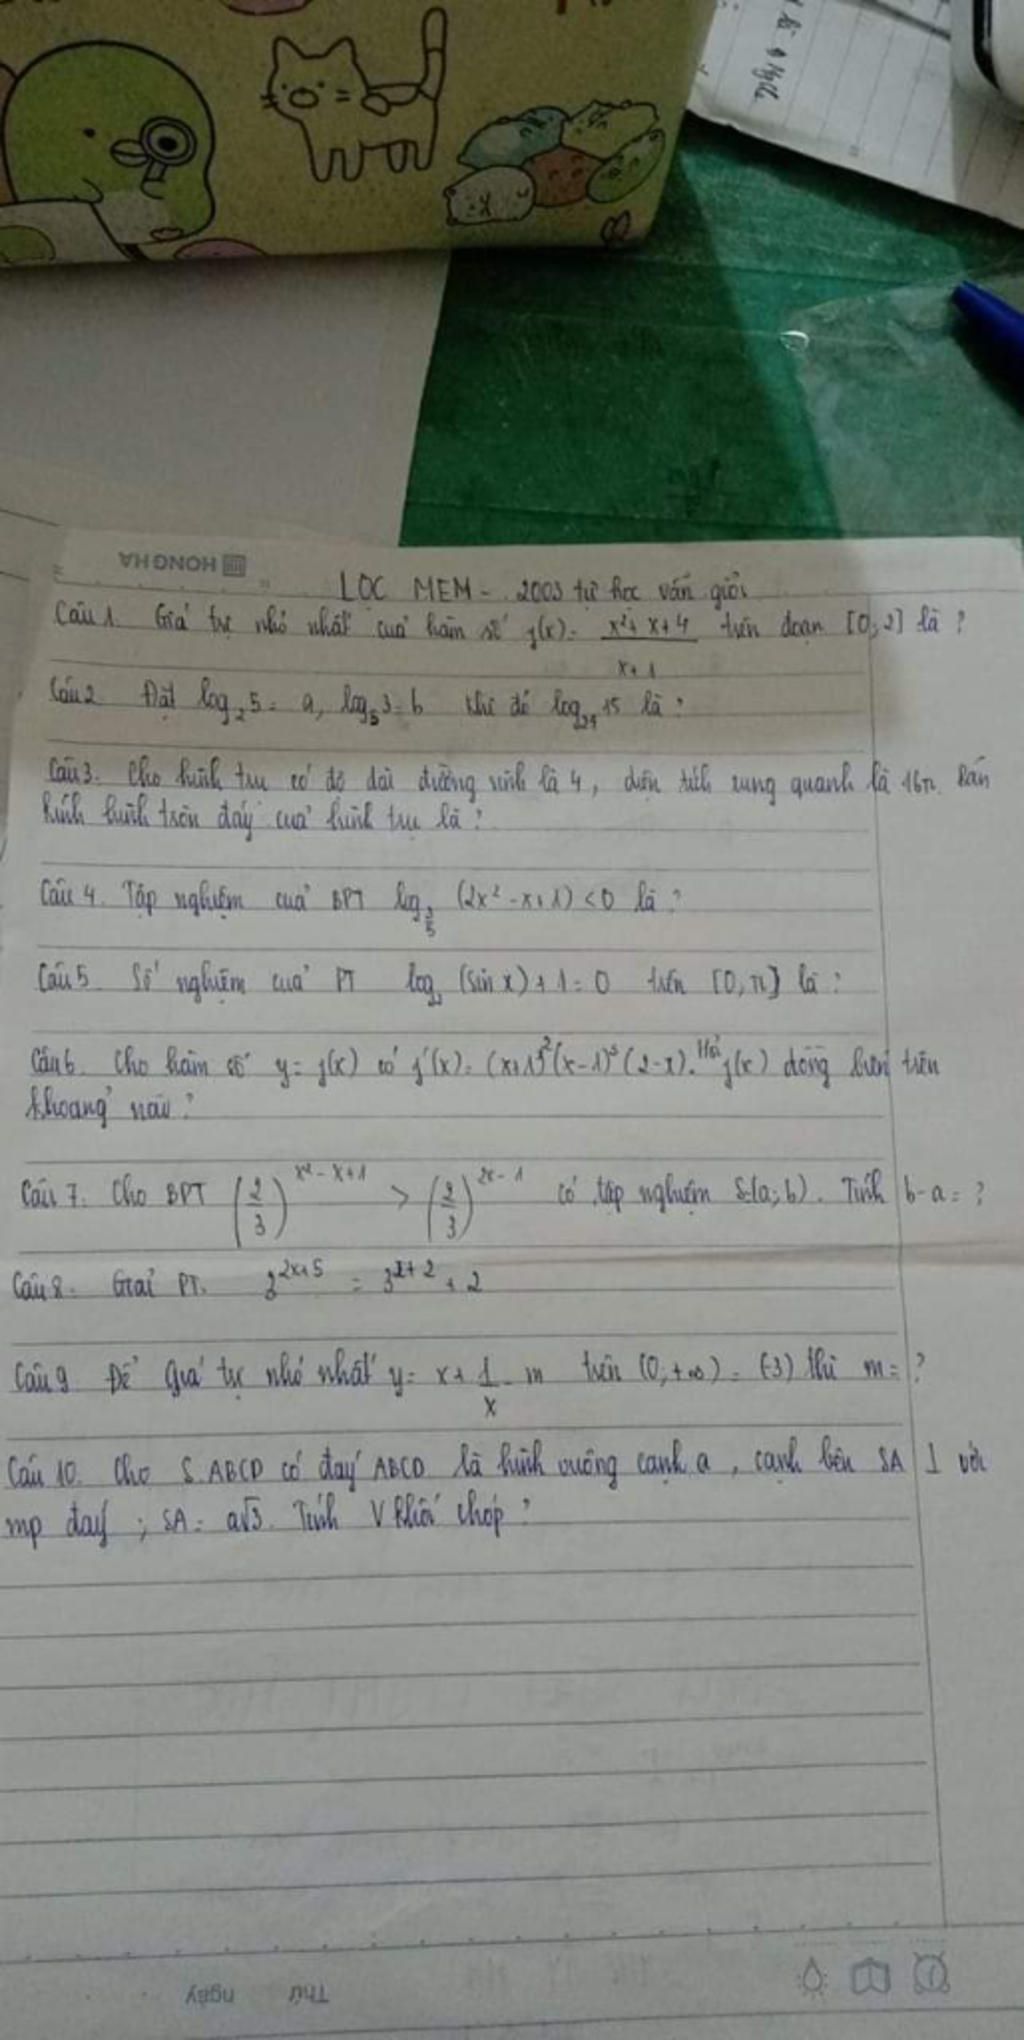 HONG HA
LỌC MEM - 2003 tự học vẫn giỏi
Câu 1. Giá trị nhỏ nhất của hàm số f(x) = (x² + x + 4)/(x + 1) trên đoạn [0; 2] là ?
Câu 2. Đặt log₂5 = a, log₅3 = b khi đó log₂₄15 là ?
Câu 3. Cho hình trụ có độ dài đường sinh là 4, diện tích xung quanh là 16π. Bán
kính hình tròn đáy của hình trụ là ?
Câu 4. Tập nghiệm của BPT log (2x² - x + 1) < 0 là ?
Câu 5. Số nghiệm của PT log (sin x) + 1 = 0 trên [0, π] là ?
Câu 6. Cho hàm số y = f(x) có f'(x) = (x+1)²(x-1)³(2-x). Hỏi f(x) đồng biến trên
khoảng nào ?
Câu 7. Cho BPT (2/3)^(x² - x + 1) > (2/3)^(2x - 1) có tập nghiệm S = (a; b). Tính b - a = ?
Câu 8. Giải PT. 3^(2x+5) = 3^(x+2) + 2
Câu 9 Để giá trị nhỏ nhất y = x + 1/x - m trên (0; +∞) = (-3) thì m = ?
Câu 10. Cho S.ABCD có đáy ABCD là hình vuông cạnh a, cạnh bên SA ⊥ với
mp đáy ; SA = a√3. Tính V khối chóp ?
Thứ ngày